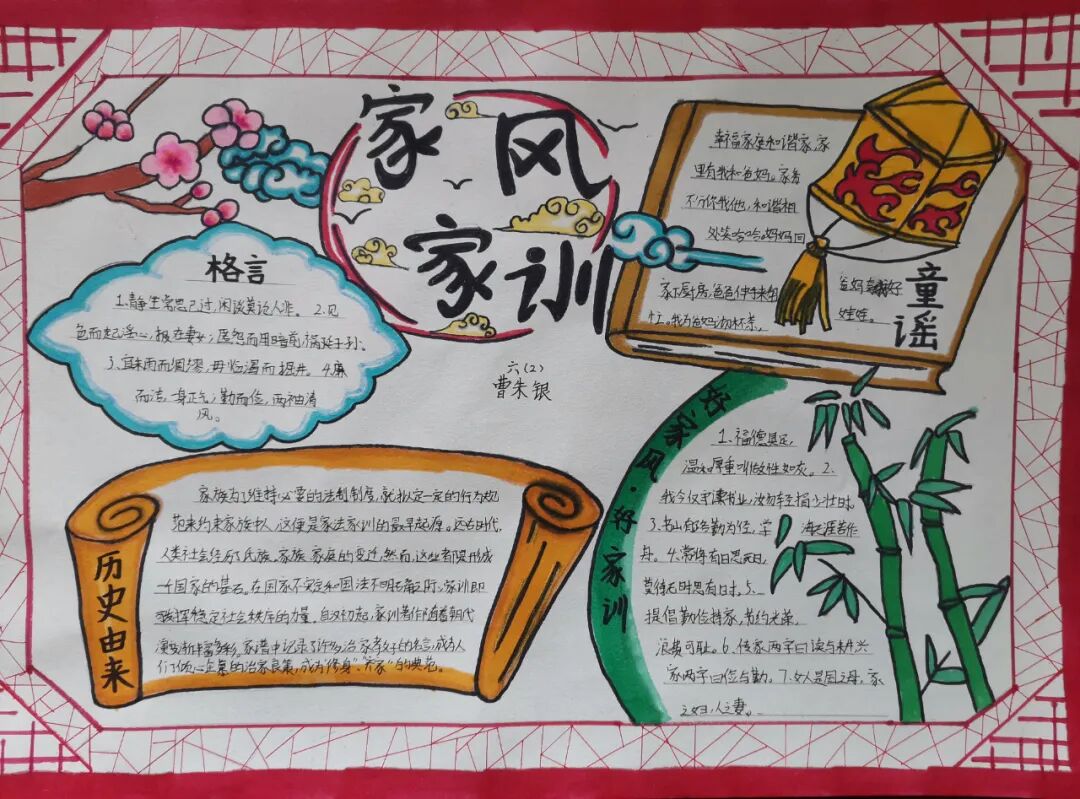 家风
家训
六(2)
曹朱银
格言
1.静坐常思己过,闲谈莫论人非。 2.见
色而起淫心,报在妻女;匿怨而用暗箭,祸延子孙。
3.宜未雨而绸缪,毋临渴而掘井。 4.廉
而洁,一身正气;勤而俭,两袖清
风。
幸福家庭和谐家,家
里有我和爸妈。家务
不分你我他,和谐相
处笑哈哈。妈妈回
家下厨房,爸爸伸手来
我为爸妈沏杯茶,
爸妈 好
娃娃。
童谣
历史由来
家族为了维持必要的法制制度,就拟定一定的行为规
范来约束家族中人,这便是家法家训的最早起源。远古时代,
人类社会经历了氏族、家族、家庭的变迁,然而,这些者 形成
一个国家的基石。在国家不安定和国法不明确之时,家训即
发挥稳定社会秩序的力量。自汉初起,家训著作随着朝代
演变渐丰富多彩,家谱中记录了许多治家 的名言,成为人
们 的治家良策,成为“修身”、“齐家”的典范。
好家风·好家训
1、福德具足,
温和厚重叫做性如灰。2.
我今仅守读书业,汝勿轻捐少壮时。
3.书山有路勤为径,学海无涯苦作
舟。4.常将有日思无日,
莫待无时思有时。5.
提倡勤俭持家,节约光荣,
浪费可耻。6.传家两字曰读与耕,兴
家两字曰俭与勤。7.女人是国之母,家
之妇,人之妻。